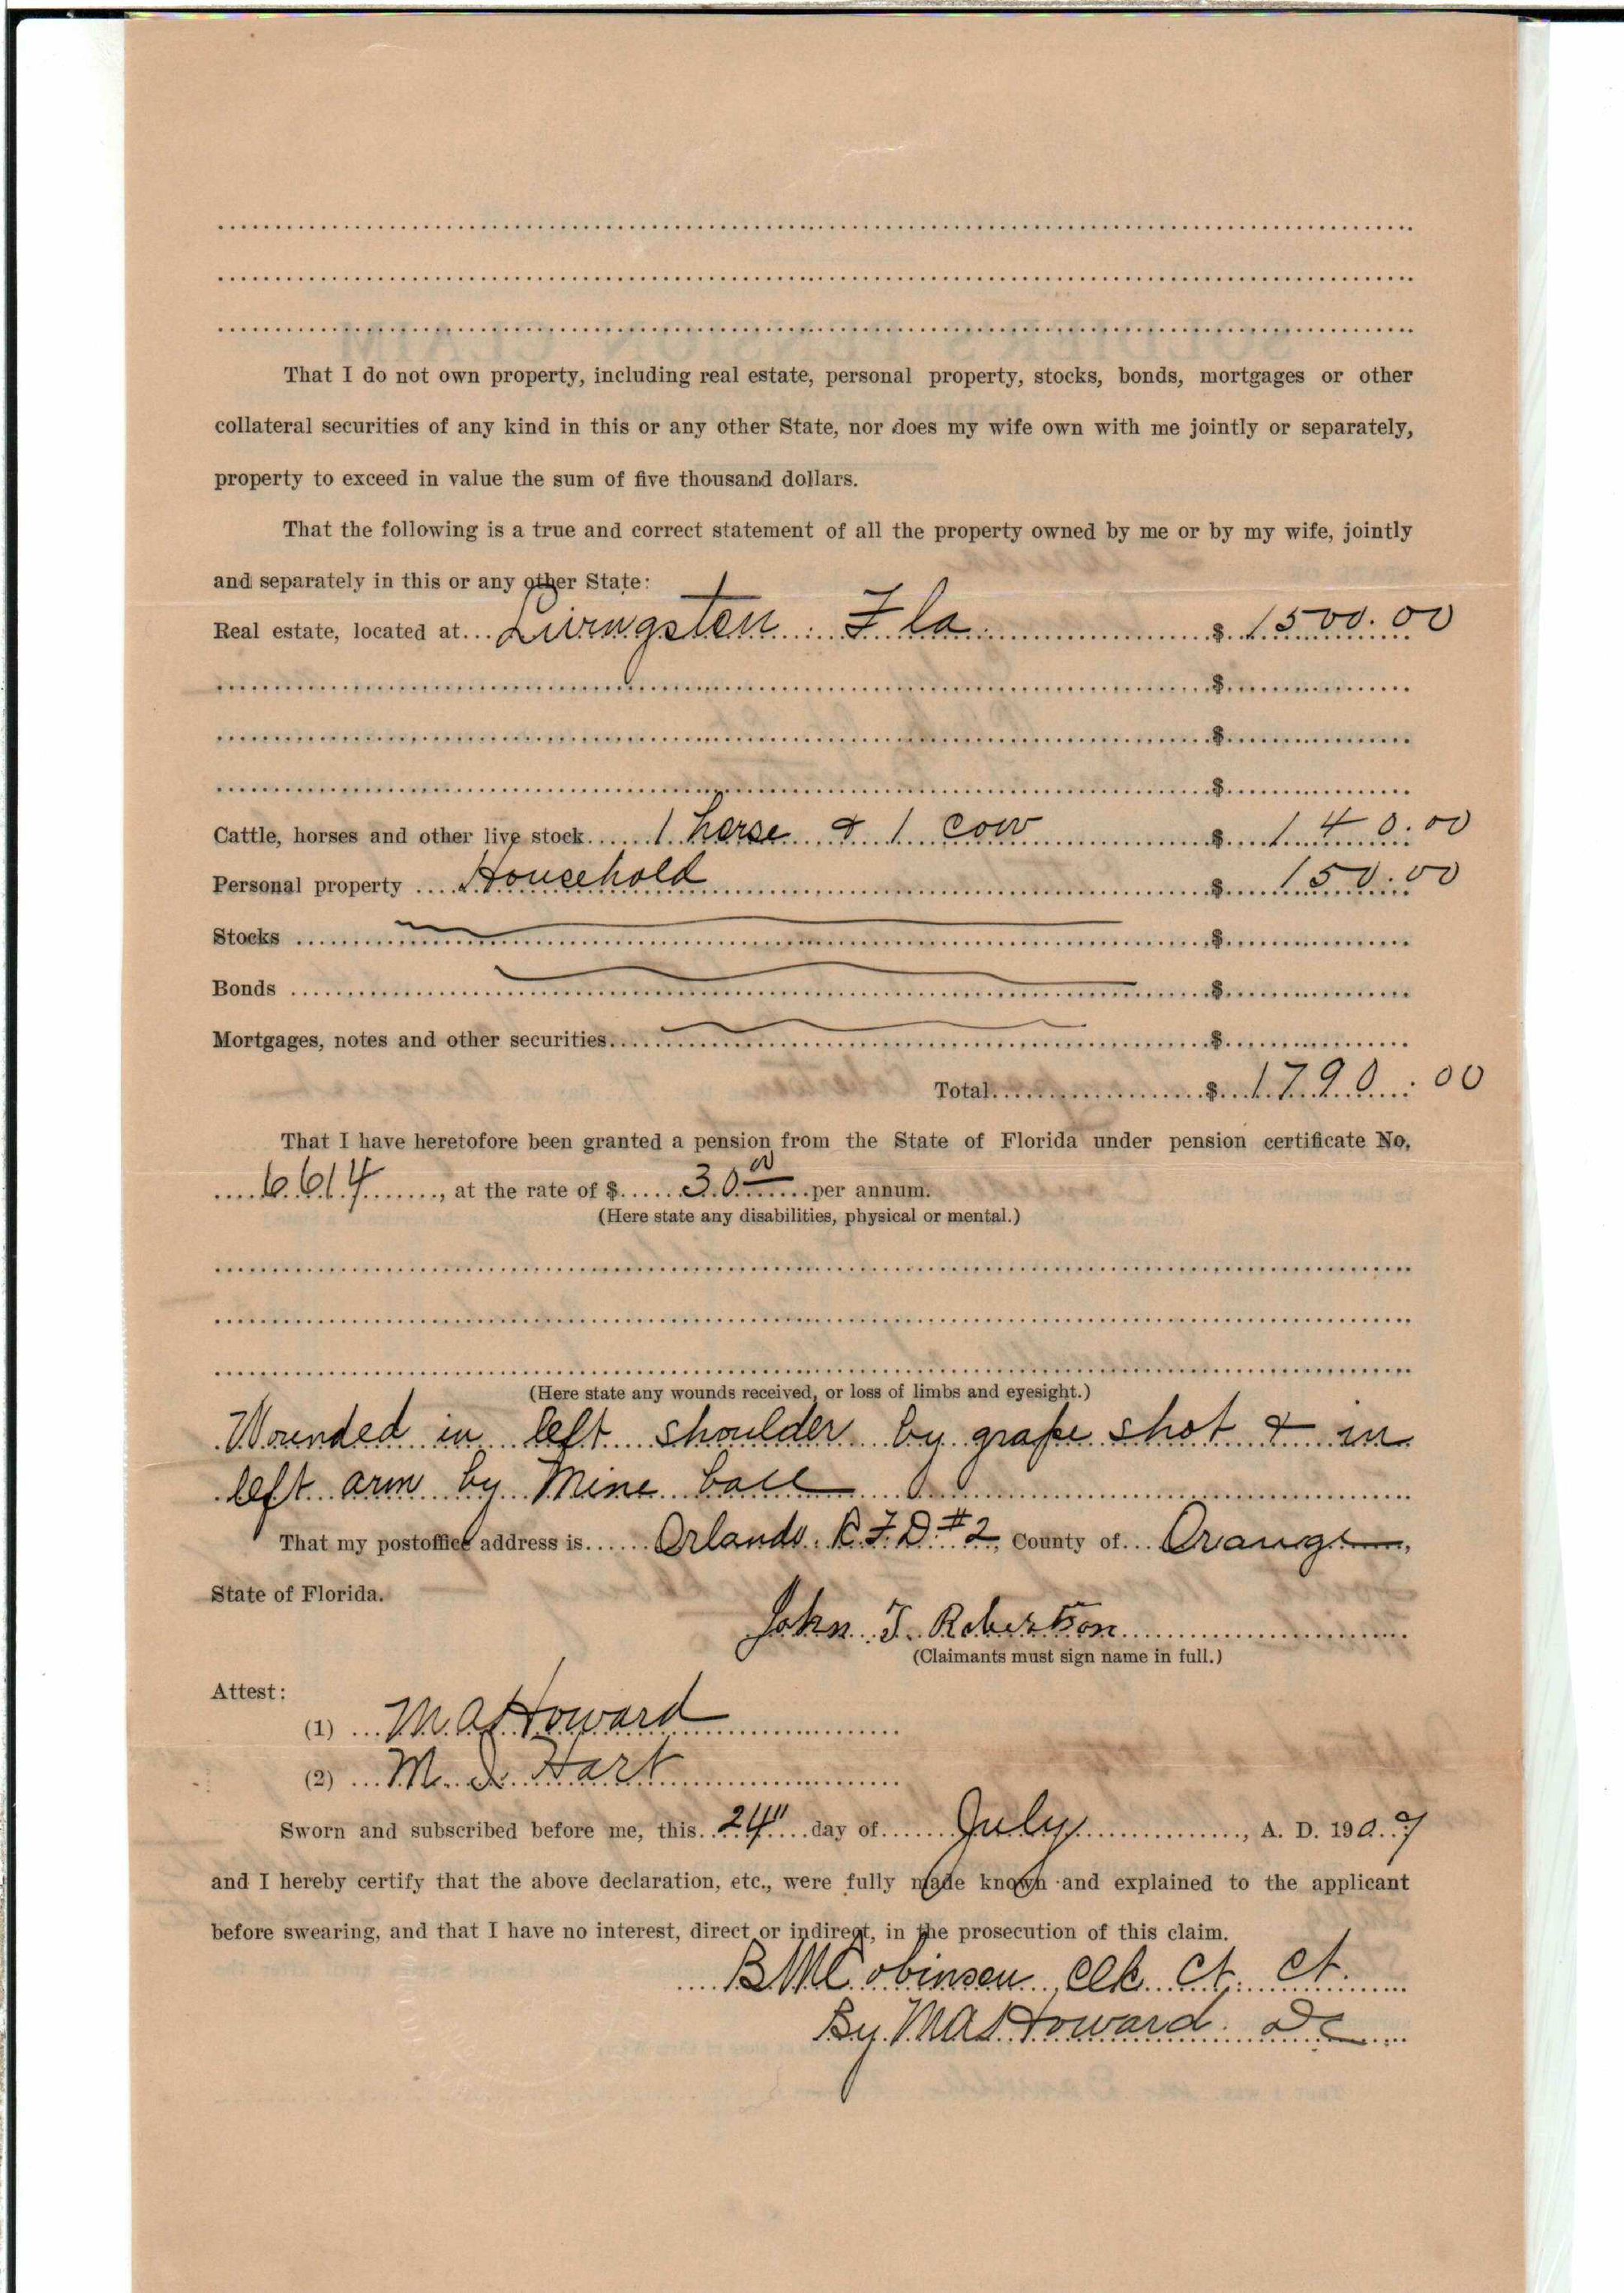 That I do not own property, including real estate, personal property, stocks, bonds, mortgages or other
collateral securities of any kind in this or any other State, nor does my wife own with me jointly or separately,
property to exceed in value the sum of five thousand dollars.
That the following is a true and correct statement of all the property owned by me or by my wife, jointly
and separately in this or any other State:
Real estate, located at Livingston Fla $ 1500.00
$
$
$
Cattle, horses and other live stock 1 horse & 1 cow $ 140.00
Personal property Household $ 150.00
Stocks $
Bonds $
Mortgages, notes and other securities $
Total $ 1790.00
That I have heretofore been granted a pension from the State of Florida under pension certificate No.
6614, at the rate of $ 30.00 per annum.
(Here state any disabilities, physical or mental.)
(Here state any wounds received, or loss of limbs and eyesight.)
Wounded in left shoulder by grape shot & in
left arm by Mine ball
That my postoffice address is Orlando R.F.D. #2, County of Orange,
State of Florida.
John T. Robertson
(Claimants must sign name in full.)
Attest:
(1) M.A. Howard
(2) M. J. Hart
Sworn and subscribed before me, this 24" day of July, A. D. 1907
and I hereby certify that the above declaration, etc., were fully made known and explained to the applicant
before swearing, and that I have no interest, direct or indirect, in the prosecution of this claim.
B M Robinson Clk Ct. Ct.
By M A Howard DC